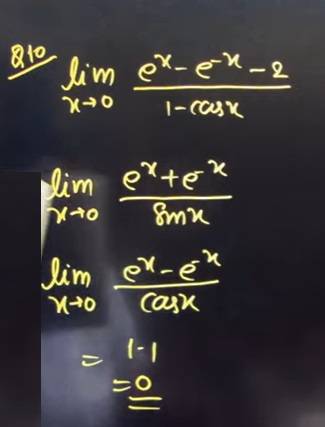 Q10 lim x→0 (e^x - e^-x - 2)/(1 - cosx)
lim x→0 (e^x + e^-x)/(sinx)
lim x→0 (e^x - e^-x)/(cosx)
= 1-1
= 0